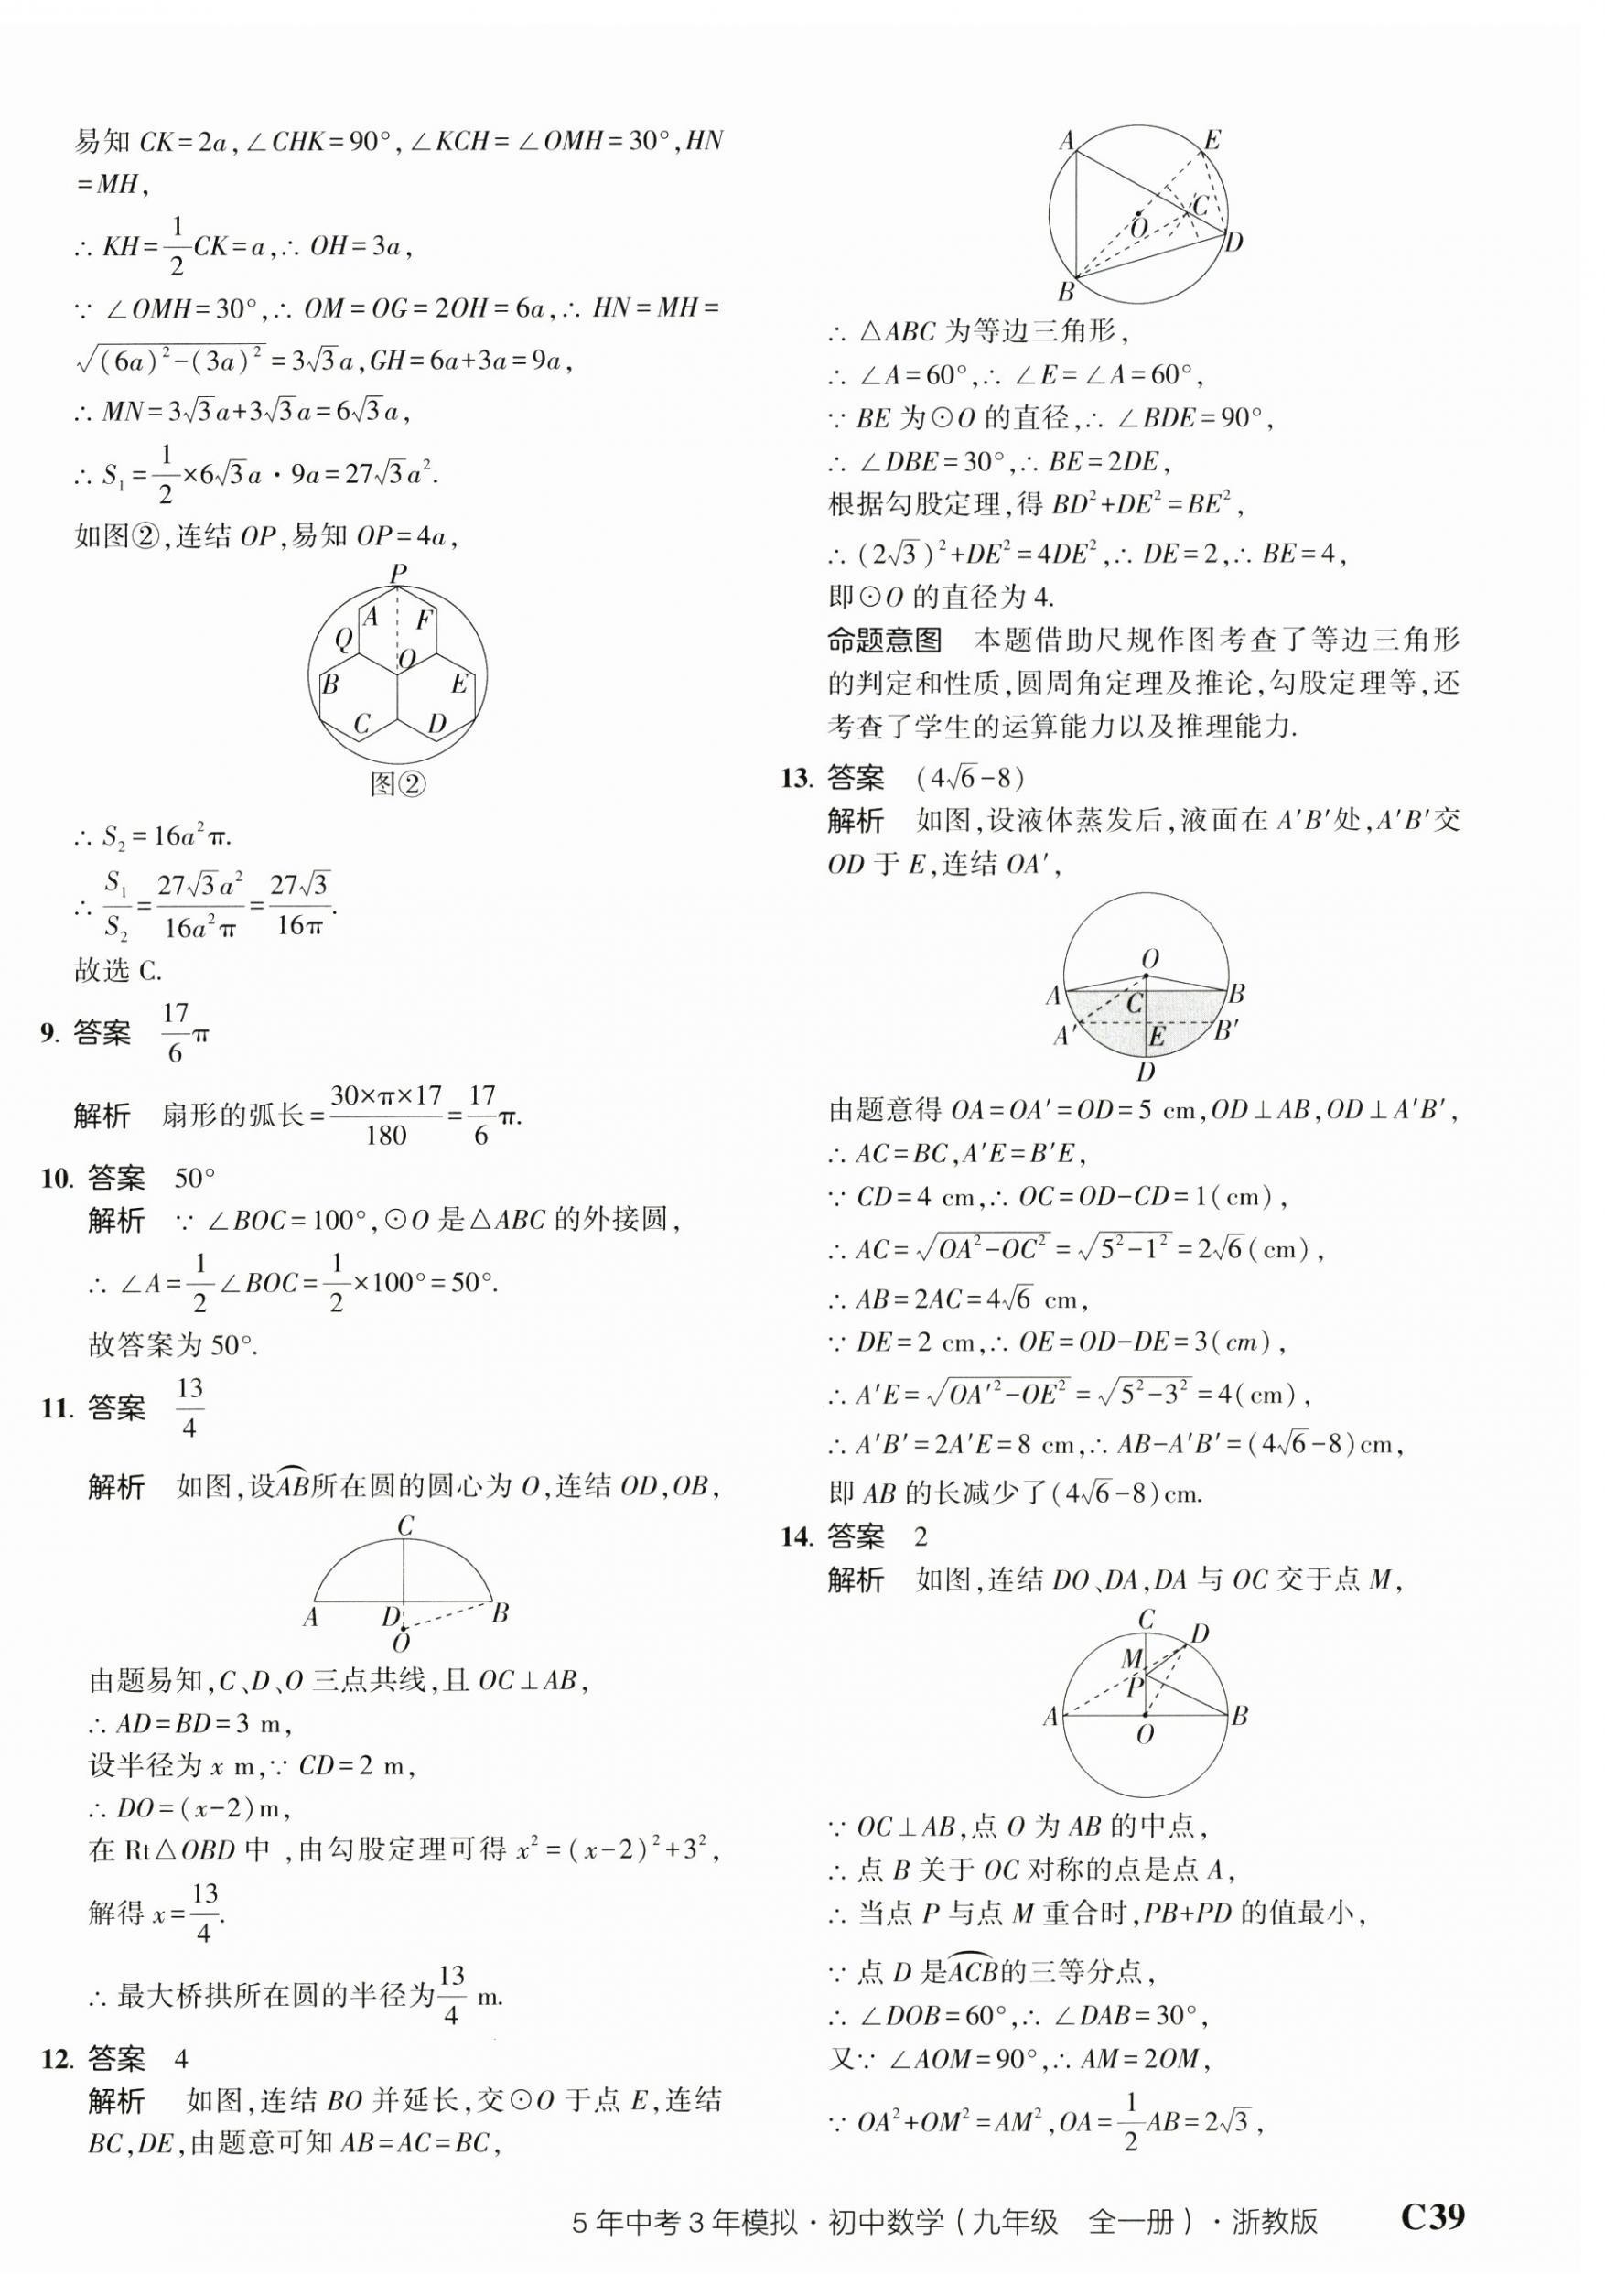 易知 CK=2a,∠CHK=90°,∠KCH=∠OMH=30°,HN
=MH,
∴ KH=1/2CK=a,∴ OH=3a,
∵ ∠OMH=30°,∴ OM=OG=2OH=6a,∴ HN=MH=
√((6a)²-(3a)²)=3√3a,GH=6a+3a=9a,
∴ MN=3√3a+3√3a=6√3a,
∴ S₁=1/2×6√3a·9a=27√3a².
如图②,连结 OP,易知 OP=4a,
P
A F
Q
O
B E
C D
图②
∴ S₂=16a²π.
∴ S₁/S₂=27√3a²/16a²π=27√3/16π.
故选 C.
9. 答案 17/6π
解析 扇形的弧长=30×π×17/180=17/6π.
10. 答案 50°
解析 ∵ ∠BOC=100°,⊙O 是△ABC 的外接圆,
∴ ∠A=1/2∠BOC=1/2×100°=50°.
故答案为 50°.
11. 答案 13/4
解析 如图,设A͡B所在圆的圆心为 O,连结 OD,OB,
C
A D B
O
由题易知,C、D、O 三点共线,且 OC⊥AB,
∴ AD=BD=3 m,
设半径为 x m,∵ CD=2 m,
∴ DO=(x-2)m,
在 Rt△OBD 中 ,由勾股定理可得 x²=(x-2)²+3²,
解得 x=13/4.
∴ 最大桥拱所在圆的半径为13/4 m.
12. 答案 4
解析 如图,连结 BO 并延长,交⊙O 于点 E,连结
BC,DE,由题意可知 AB=AC=BC,
A E
C
O
D
B
∴ △ABC 为等边三角形,
∴ ∠A=60°,∴ ∠E=∠A=60°,
∵ BE 为⊙O 的直径,∴ ∠BDE=90°,
∴ ∠DBE=30°,∴ BE=2DE,
根据勾股定理,得 BD²+DE²=BE²,
∴ (2√3)²+DE²=4DE²,∴ DE=2,∴ BE=4,
即⊙O 的直径为 4.
命题意图 本题借助尺规作图考查了等边三角形
的判定和性质,圆周角定理及推论,勾股定理等,还
考查了学生的运算能力以及推理能力.
13. 答案 (4√6-8)
解析 如图,设液体蒸发后,液面在 A′B′处,A′B′交
OD 于 E,连结 OA′,
O
A C B
A′ E B′
D
由题意得 OA=OA′=OD=5 cm,OD⊥AB,OD⊥A′B′,
∴ AC=BC,A′E=B′E,
∵ CD=4 cm,∴ OC=OD-CD=1(cm),
∴ AC=√(OA²-OC²)=√(5²-1²)=2√6(cm),
∴ AB=2AC=4√6 cm,
∵ DE=2 cm,∴ OE=OD-DE=3(cm),
∴ A′E=√(OA′²-OE²)=√(5²-3²)=4(cm),
∴ A′B′=2A′E=8 cm,∴ AB-A′B′=(4√6-8)cm,
即 AB 的长减少了(4√6-8)cm.
14. 答案 2
解析 如图,连结 DO、DA,DA 与 OC 交于点 M,
C
D
M
P
A B
O
∵ OC⊥AB,点 O 为 AB 的中点,
∴ 点 B 关于 OC 对称的点是点 A,
∴ 当点 P 与点 M 重合时,PB+PD 的值最小,
∵ 点 D 是A͡CB的三等分点,
∴ ∠DOB=60°,∴ ∠DAB=30°,
又∵ ∠AOM=90°,∴ AM=2OM,
∵ OA²+OM²=AM²,OA=1/2AB=2√3,
5 年中考 3 年模拟·初中数学(九年级 全一册)·浙教版 C39